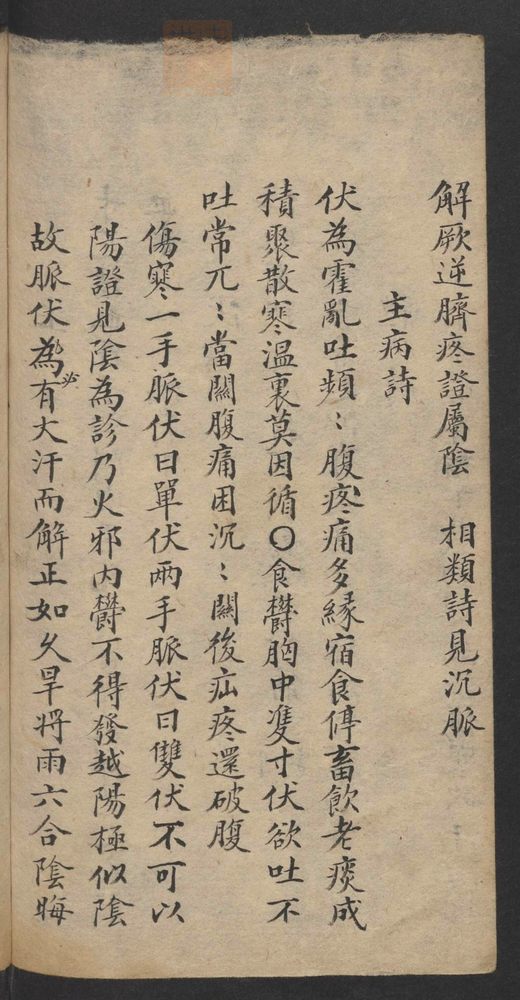 解厥逆臍疼證屬陰　相類詩見沉脈
主病詩
伏為霍亂吐頻〻腹疼痛多緣宿食停畜飲老痰成
積聚散寒温裏莫因循〇食欝胸中雙寸伏欲吐不
吐常兀〻當關腹痛困沉〻關後疝疼還破腹
傷寒一手脈伏曰單伏兩手脈伏曰雙伏不可以
陽證見陰為診乃火邪内欝不得發越陽極似陰
故脈伏為必有大汗而解正如久旱將雨六合陰晦